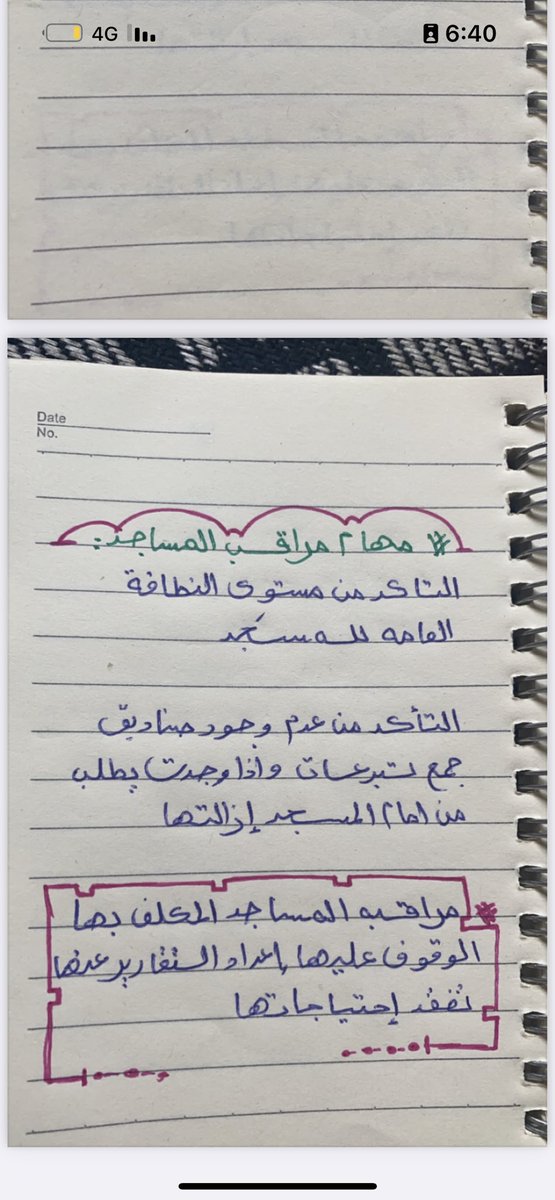 4G 6:40
Date
No.
* مهام مراقب المساجد:
التاكد من مستوى النظافة
العامه للمسجد
التأكد من عدم وجود صناديق
جمع تبرعات واذا وجدت يطلب
من امام المسجد إزالتها
* مراقبه المساجد المكلف بها
الوقوف عليها بإعداد التقارير عنها
تفقد إحتياجاتها